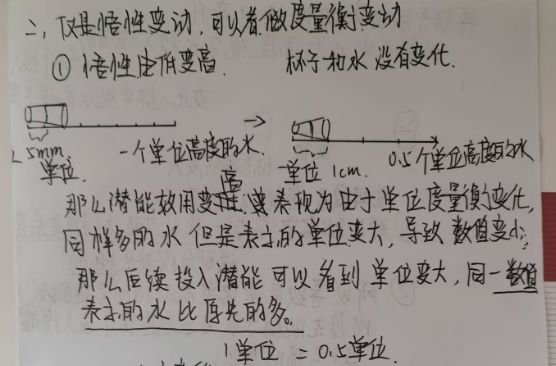 二、仅是悟性变动,可以看做度量衡变动
① 悟性由低变高. 杯子和水没有变化.
5mm. 一个单位高度的水 → 一单位 1cm. 0.5个单位高度的水
单位.
那么潜能效用变高.要表现为由于单位度量衡变化,
同样多的水 但是表示的单位变大,导致数值变小;
那么后续投入潜能可以看到单位变大,同一数值
表示的水比原先的多。
1单位 = 0.5单位.